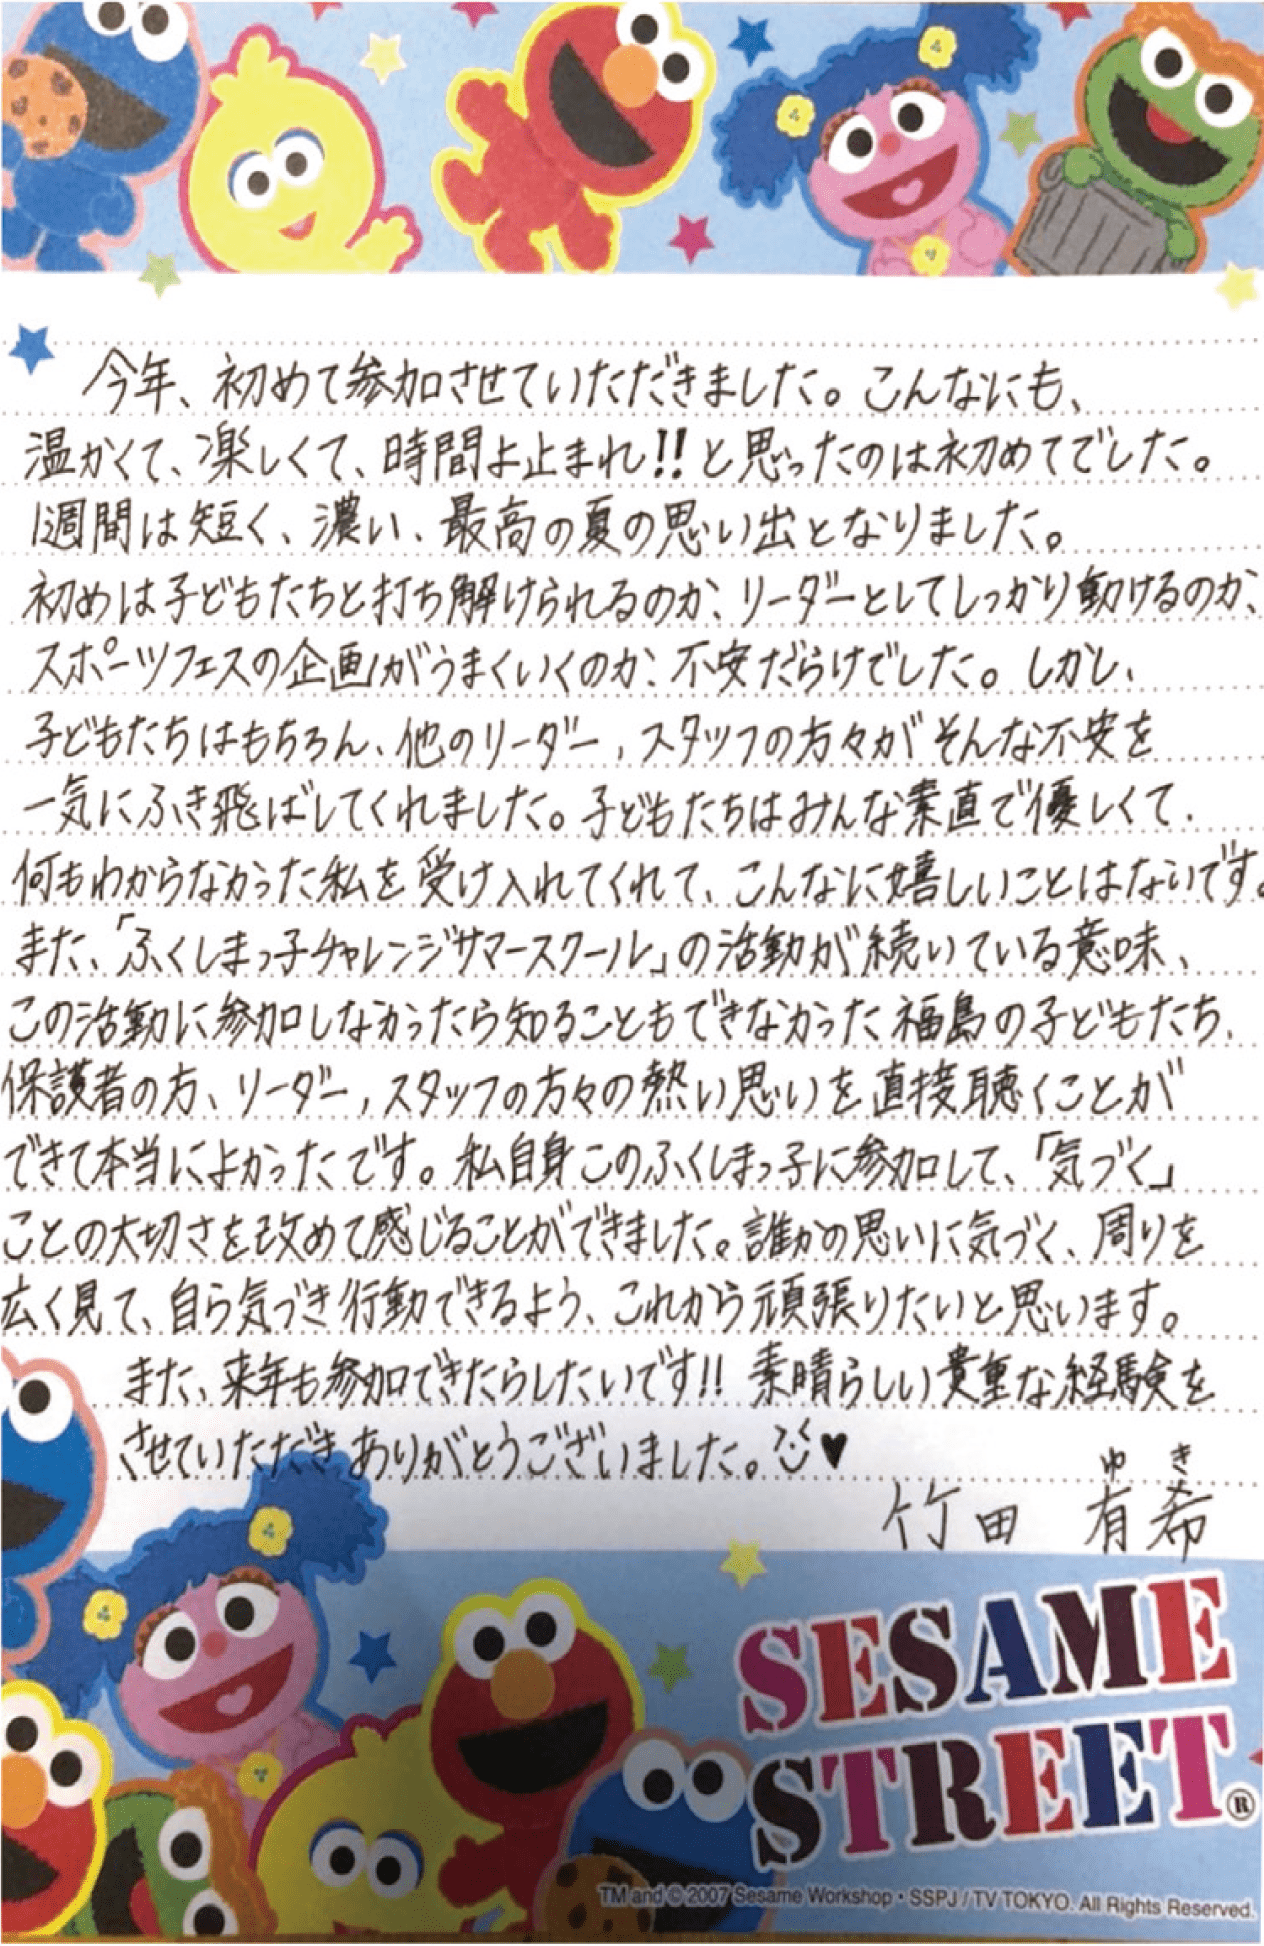 今年、初めて参加させていただきました。こんなにも、
温かくて、楽しくて、時間よ止まれ!!と思ったのは初めてでした。
1週間は短く、濃い、最高の夏の思い出となりました。
初めは子どもたちと打ち解けられるのか、リーダーとしてしっかり動けるのか、
スポーツフェスの企画がうまくいくのか、不安だらけでした。しかし、
子どもたちはもちろん、他のリーダー,スタッフの方々がそんな不安を
一気にふき飛ばしてくれました。子どもたちはみんな素直で優しくて、
何もわからなかった私を受け入れてくれて、こんなに嬉しいことはないです。
また、「ふくしまっ子チャレンジサマースクール」の活動が続いている意味、
この活動に参加しなかったら知ることもできなかった福島の子どもたち、
保護者の方、リーダー,スタッフの方々の熱い思いを直接聴くことが
できて本当によかったです。私自身このふくしまっ子に参加して、「気づく」
ことの大切さを改めて感じることができました。誰かの思いに気づく、周りを
広く見て、自ら気づき行動できるよう、これから頑張りたいと思います。
また、来年も参加できたらしたいです!! 素晴らしい貴重な経験を
させていただきありがとうございました。♥
ゆき
竹田 有希
SESAME
STREET®
TM and © 2007 Sesame Workshop・SSPJ / TV TOKYO. All Rights Reserved.